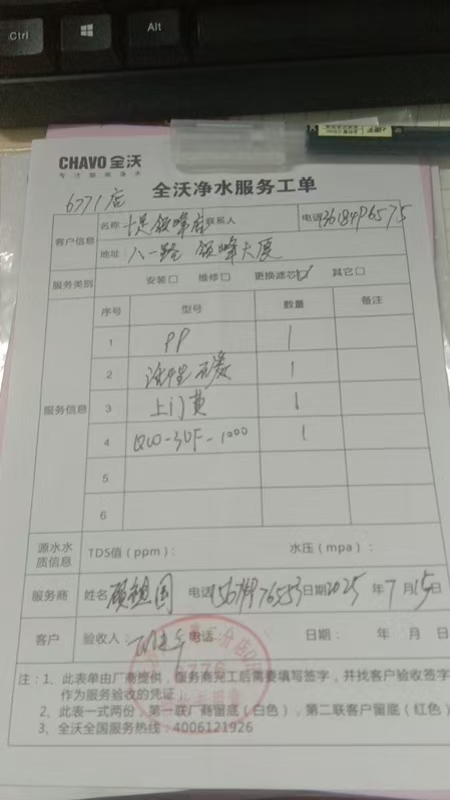 Ctrl
Alt
CHAVO 全沃
专注健康净水
全沃净水服务工单
6771店
客户信息 名称 十足领峰店 联系人 电话
地址 八一路 领峰大厦
服务类别 安装□ 维修□ 更换滤芯☑ 其它□
服务信息 序号 型号 数量 备注
1 PP 1
2 1
3 上门费 1
4 1
5
6
源水水质信息 TDS值（ppm）： 水压（mpa）：
服务商 姓名 电话 日期 2025 年 7 月 15 日
客户 验收人： 电话 日期： 年 月 日
注：1、此表单由厂商提供，服务商完工后需要填写签字，并找客户验收签字
作为服务验收的凭证
2、此表一式两份，第一联厂商留底（白色），第二联客户留底（红色）
3、全沃全国服务热线：4006121926